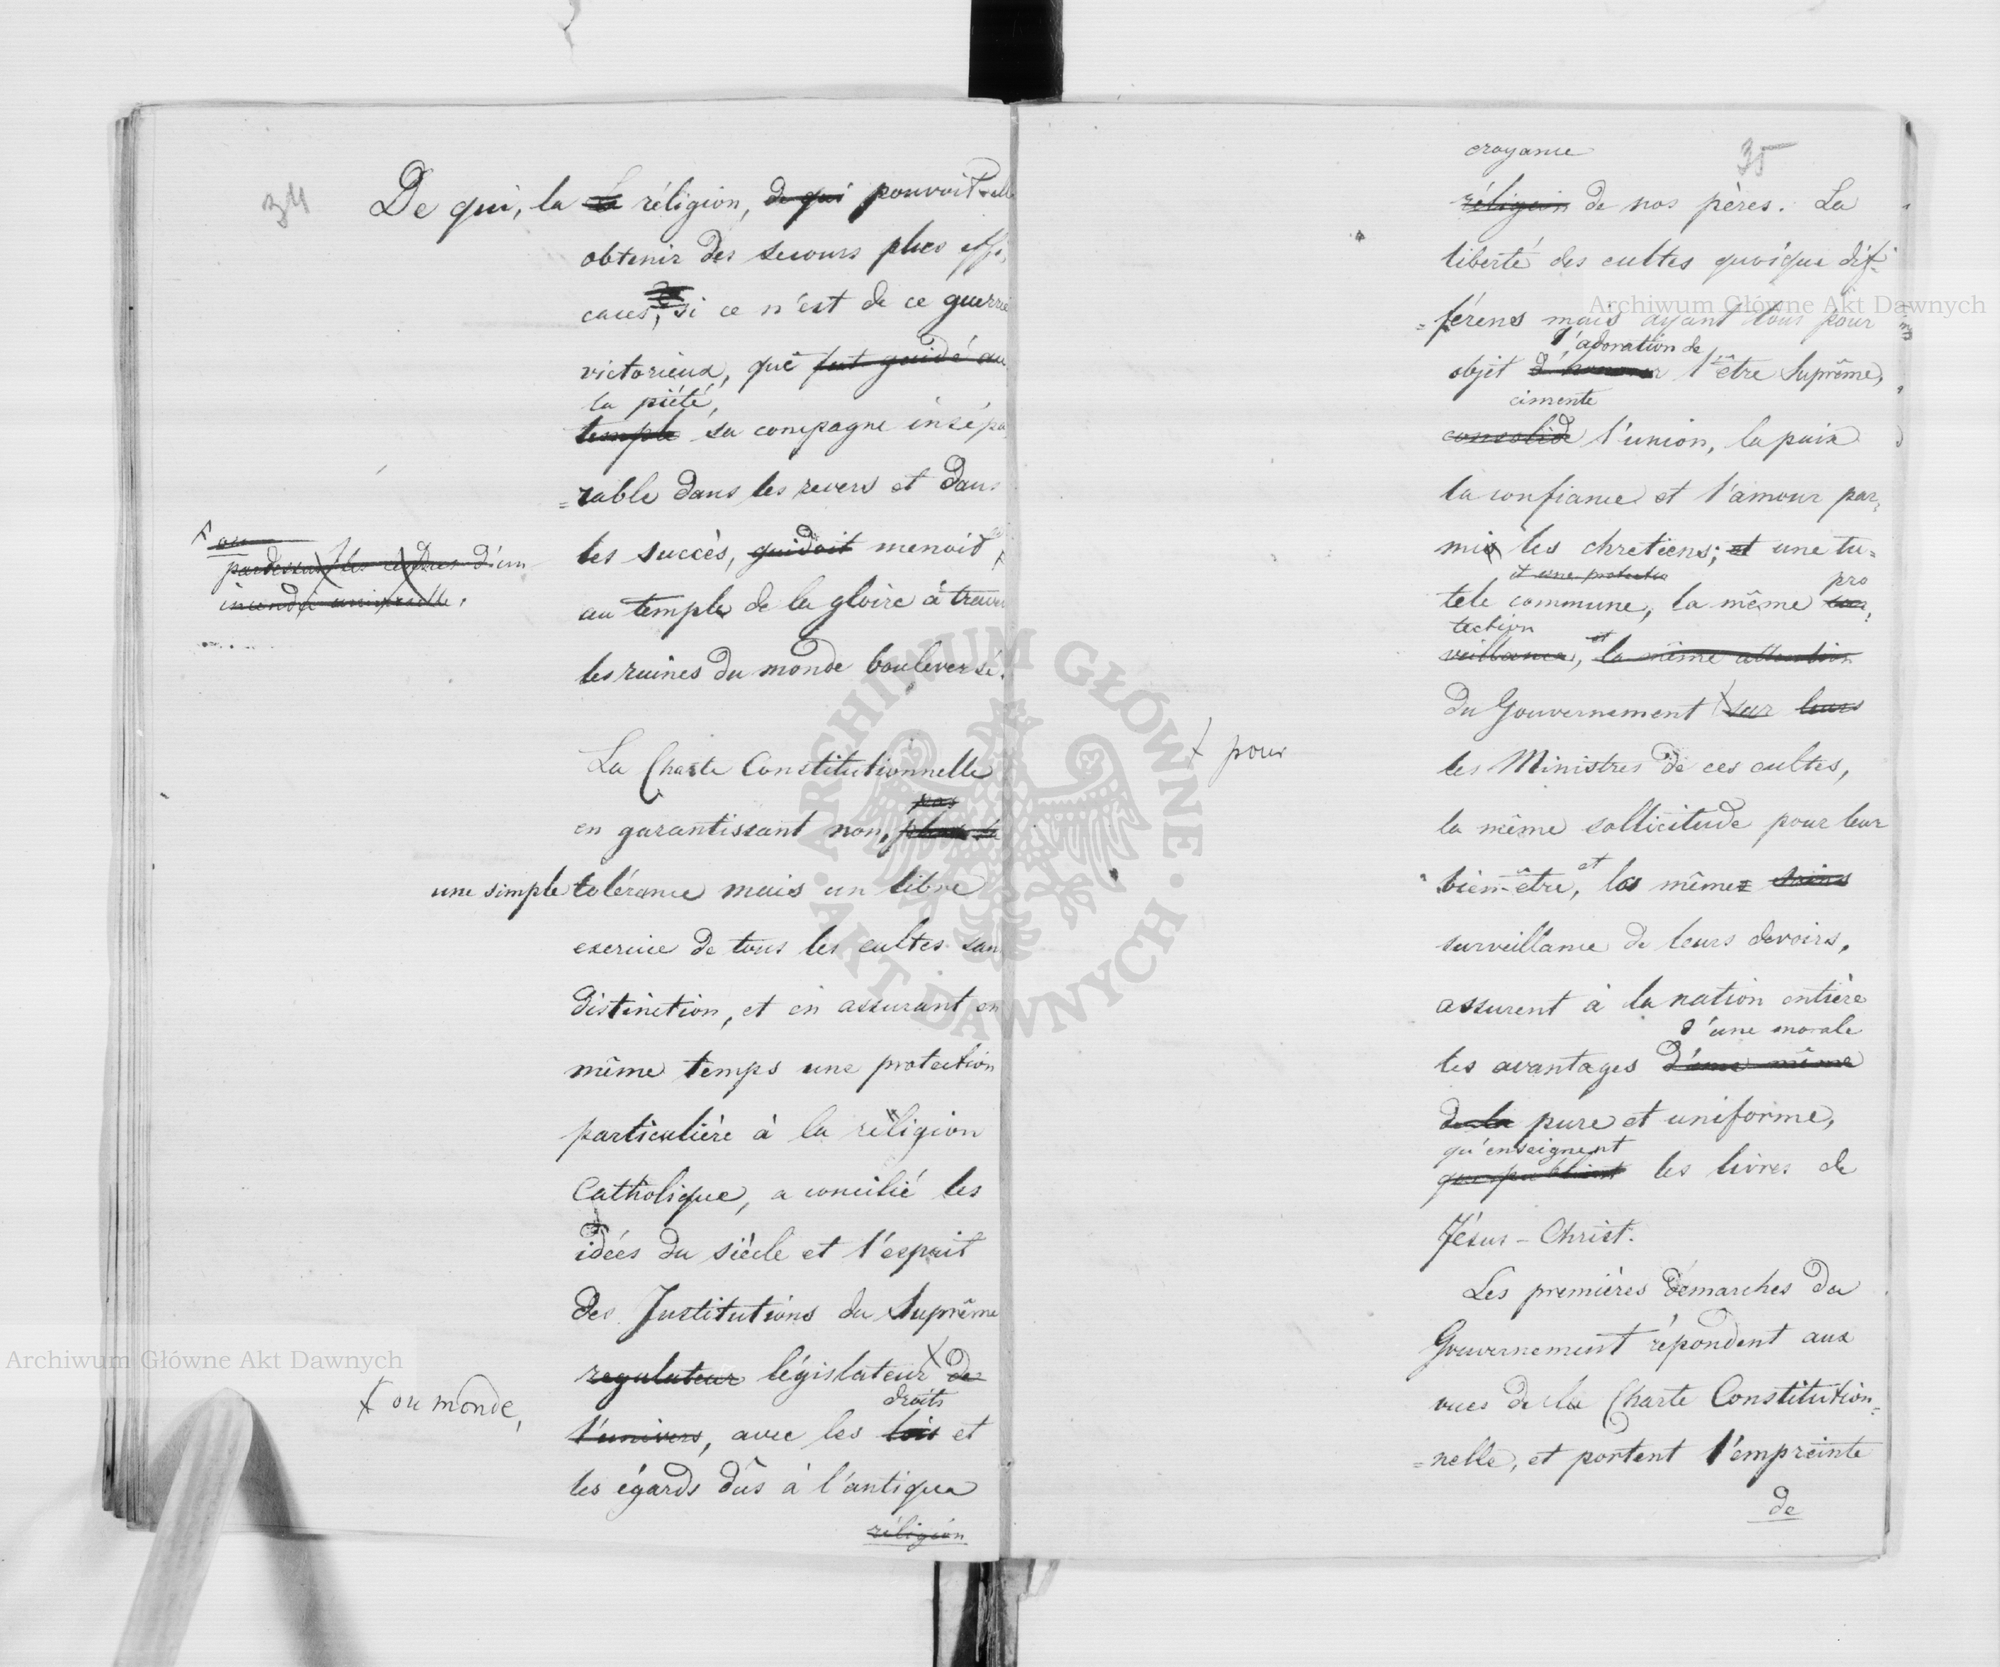 34
De qui, la ~~La~~ réligion, ~~de qui~~ pouvoit-elle
obtenir des secours plus effi,
caces, si ce n'est de ce guerrie
victorieux, que ~~fut guidé au~~
la piété,
~~temple~~ sa compagne insépa,
=rable dans les revers et dans
les succès, ~~guidoit~~ menoit
~~ou~~
~~pardessus les cendres d'un~~
~~incendie universelle.~~
au temple de la gloire à traver
les ruines du monde bouleversé.
La Charte Constitutionnelle
~~pas~~
en garantissant non, ~~plus la~~
une simple tolérance mais un libre
exercice de tous les cultes san
distinction, et en assurant en
même temps une protection
particulière à la réligion
Catholique, a concilié les
idées du siècle et l'esprit
des Institutions du Suprême
~~regulateur~~ législateur × ~~de~~
× du monde,
droits
~~l'univers~~, avec les ~~lois~~ et
les égards dûs à l'antique
~~réligion~~
35
croyance
~~réligion~~ de nos pères. La
liberté des cultes quoique dif=
=férens mais ayant tous pour
l'adoration de
objet ~~d'honorer~~ l'être Suprême,
cimente
~~consolide~~ l'union, la paix
la confiance et l'amour par,
mi les chretiens; ~~et~~ une tu=
~~et une protectio~~
tele commune, la même pro
tection
~~veillance~~, et ~~la même attention~~
du Gouvernement × ~~sur~~ ~~leurs~~
× pour
les Ministres de ces cultes,
la même sollicitude pour leur
bien-être, et la même ~~soins~~
surveillance de leurs devoirs,
assurent à la nation entière
d'une morale
les avantages ~~d'une même~~
~~de la~~ pure et uniforme,
qu'enseignent
~~que publient~~ les livres de
Jésus-Christ.
Les premières démarches du
Gouvernement répondent aux
vues de la Charte Constitution=
=nelle, et portent l'empreinte
de
Archiwum Główne Akt Dawnych
Archiwum Główne Akt Dawnych
ARCHIWUM GŁÓWNE · AKT DAWNYCH ·